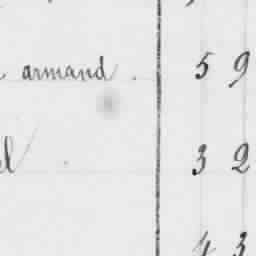 armand. 59
32
43